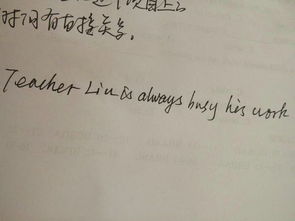 时间有直接关系。
Teacher Liu is always busy his work